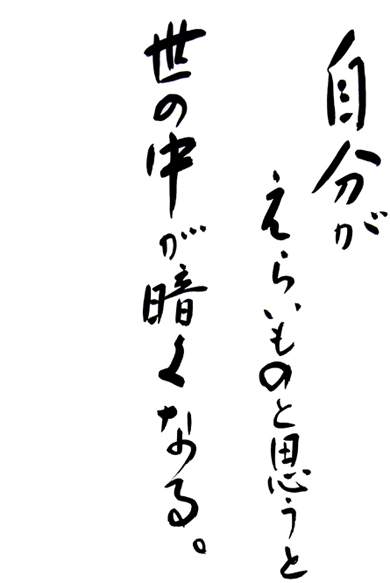 自分が
えらいものと思うと
世の中が暗くなる。